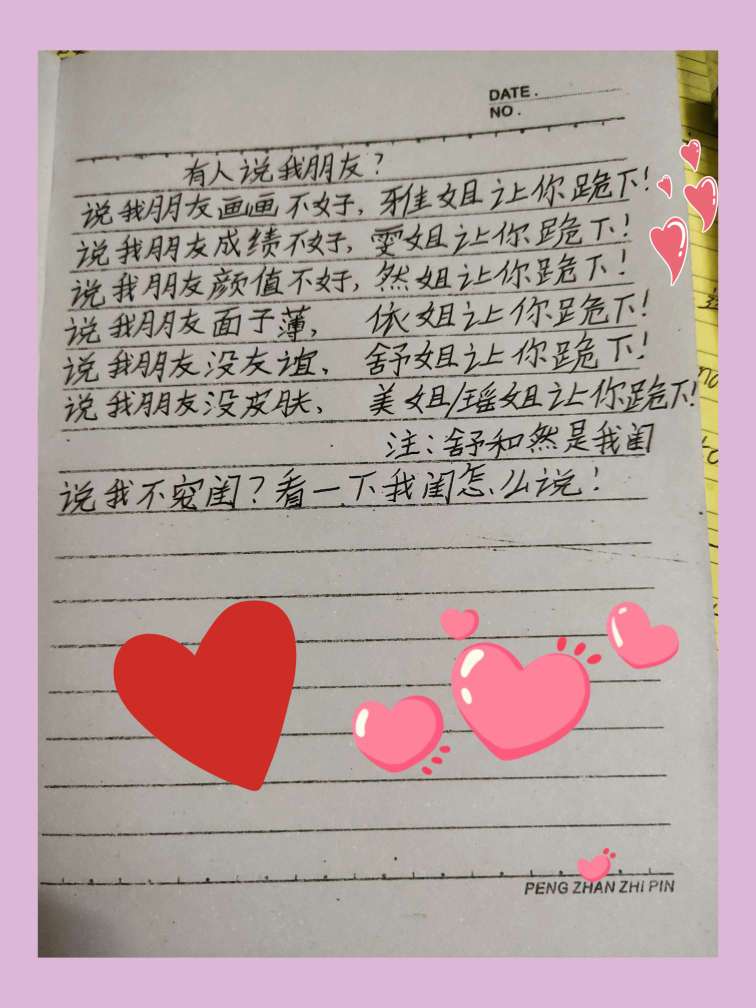 DATE.
NO.
有人说我朋友?
说我朋友画画不好,雅姐让你跪下!
说我朋友成绩不好,雯姐让你跪下!
说我朋友颜值不好,然姐让你跪下!
说我朋友面子薄, 依姐让你跪下!
说我朋友没友谊, 舒姐让你跪下!
说我朋友没皮肤, 美姐/瑶姐让你跪下!
注:舒和然是我闺
说我不宠闺?看一下我闺怎么说!
PENG ZHAN ZHI PIN